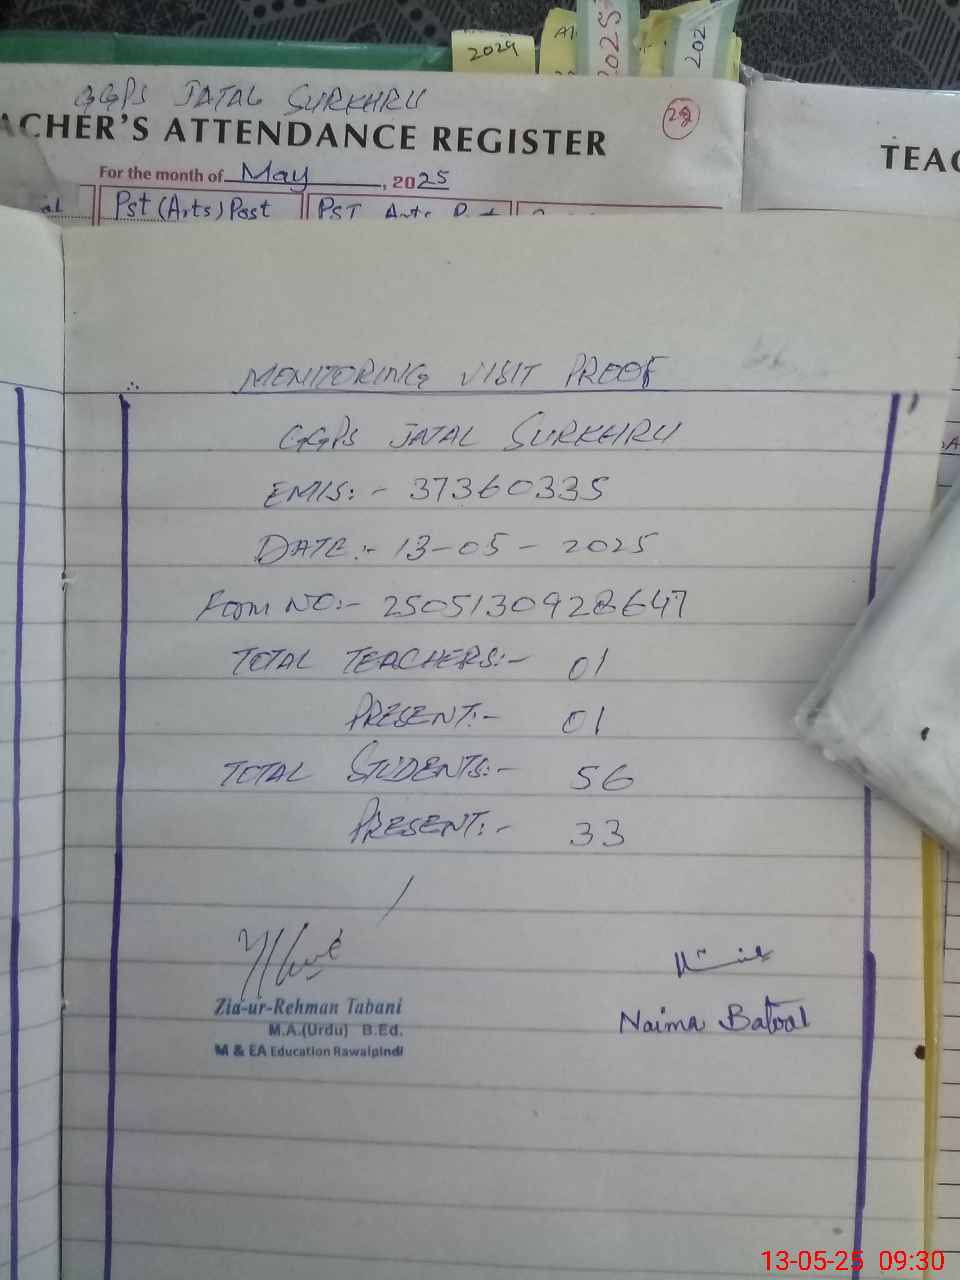 2024
2025
202
GGPS JATAL SURKHRU
ACHER'S ATTENDANCE REGISTER
28
TEAC
For the month of May, 2025
al
Pst (Arts) Post
PST Arts Post
MENITORING VISIT PROOF
GGPS JATAL SURKHRU
EMIS:- 37360335
DATE:- 13-05-2025
Form NO:- 2505130928647
TOTAL TEACHERS:- 01
PRESENT:- 01
TOTAL STUDENTS:- 56
PRESENT:- 33
Zia-ur-Rehman Tabani
M.A.(Urdu) B.Ed.
M & EA Education Rawalpindi
Naima Batool
13-05-25 09:30